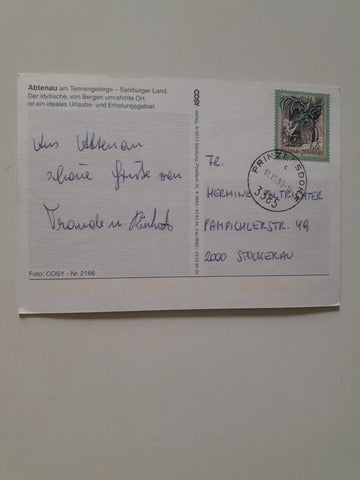 Abtenau am Tennengebirge – Salzburger Land.
Der idyllische, von Bergen umrahmte Ort,
ist ein ideales Urlaubs- und Erholungsgebiet.
Aus Abtenau
schöne Grüße von
Traude u.
Foto: COSY - Nr. 2166
COSY Verlag, A-5021 Salzburg
PRINZERSDORF
3385
FR.
HERMINE
PAMPICHLERSTR. 49
2000 STOCKERAU